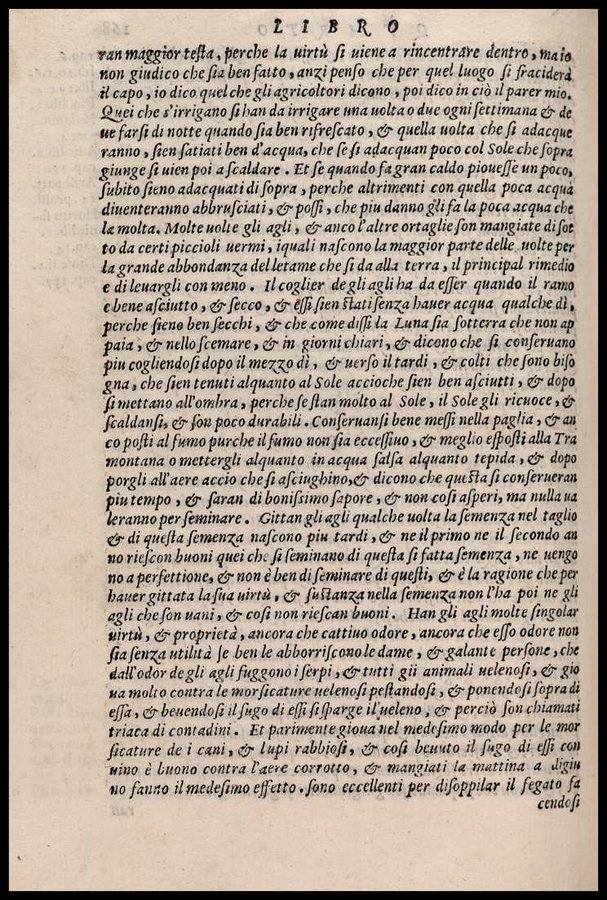 LIBRO
ran maggior testa, perche la uirtù si uiene a rincentrare dentro, ma io
non giudico che sia ben fatto, anzi penso che per quel luogo si fraciderà
il capo, io dico quel che gli agricoltori dicono, poi dico in ciò il parer mio.
Quei che s'irrigano si han da irrigare una uolta o due ogni settimana & de
ue farsi di notte quando sia ben rifrescato, & quella uolta che si adacque
ranno, sien satiati ben d'acqua, che se si adacquan poco col Sole che sopra
giunge si uien poi a scaldare. Et se quando fa gran caldo piouesse un poco,
subito sieno adacquati di sopra, perche altrimenti con quella poca acqua
diuenteranno abbrusciati, & possi, che piu danno gli fa la poca acqua che
la molta. Molte uolte gli agli, & anco l'altre ortaglie son mangiate di sot
to da certi piccioli uermi, iquali nascono la maggior parte delle uolte per
la grande abbondanza del letame che si da alla terra, il principal rimedio
e di leuargli con meno. Il coglier de gli agli ha da esser quando il ramo
e bene asciutto, & secco, & essi sien stati senza hauer acqua qualche dì,
perche sieno ben secchi, & che come dissi la Luna sia sotterra che non ap
paia, & nello scemare, & in giorni chiari, & dicono che si conseruano
piu cogliendosi dopo il mezzo dì, & uerso il tardi, & colti che sono biso
gna, che sien tenuti alquanto al Sole accioche sien ben asciutti, & dopo
si mettano all'ombra, perche se stan molto al Sole, il Sole gli ricuoce, &
scaldansi, & son poco durabili. Conseruansi bene messi nella paglia, & an
co posti al fumo purche il fumo non sia eccessiuo, & meglio esposti alla Tra
montana o mettergli alquanto in acqua salsa alquanto tepida, & dopo
porgli all'aere accio che si asciughino, & dicono che questa si conserueran
piu tempo, & saran di bonissimo sapore, & non cosi asperi, ma nulla ua
leranno per seminare. Gittan gli agli qualche uolta la semenza nel taglio
& di questa semenza nascono piu tardi, & ne il primo ne il secondo an
no riescon buoni quei che si seminano di questa si fatta semenza, ne uengo
no a perfettione, & non è ben di seminare di questi, & è la ragione che per
hauer gittata la sua uirtù, & sustanza nella semenza non l'ha poi ne gli
agli che son uani, & cosi non riescan buoni. Han gli agli molte singolar
uirtù, & proprietà, ancora che cattiuo odore, ancora che esso odore non
sia senza utilità se ben le abborriscono le dame, & galante persone, che
dall'odor de gli agli fuggono i serpi, & tutti gii animali uelenosi, & gio
ua molto contra le morsicature uelenosi pestandosi, & ponendosi sopra di
essa, & beuendosi il sugo di essi si sparge il ueleno, & perciò son chiamati
triaca di contadini. Et parimente gioua nel medesimo modo per le mor
sicature de i cani, & lupi rabbiosi, & cosi beuuto il sugo di essi con
uino è buono contra l'aere corrotto, & mangiati la mattina a digiu
no fanno il medesimo effetto. sono eccellenti per disoppilar il fegato fa
cendosi